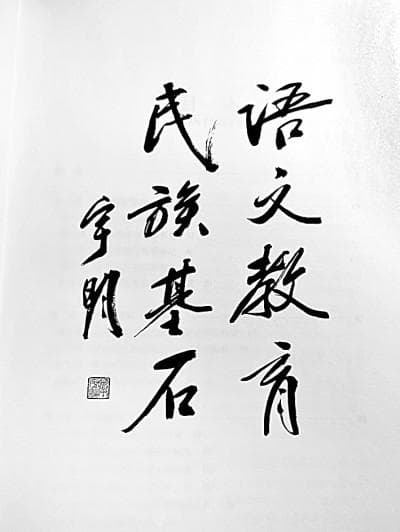 语文教育
民族基石
宇明